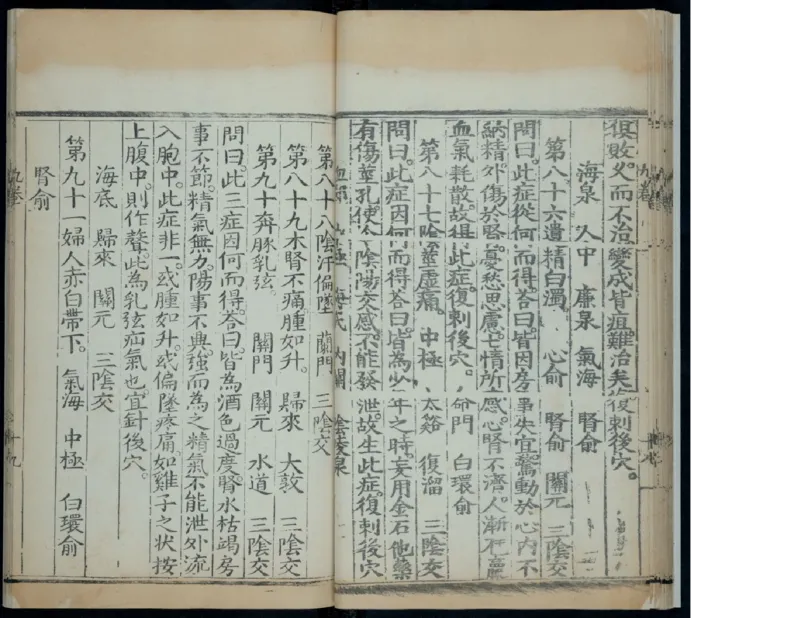 俱敗久而不治變成背疽難治矣復刺後穴。
海泉　人中　廉泉　氣海　腎俞
第八十六遺精白濁。　心俞　腎俞　關元　三陰交
問曰。此症從何而得。答曰。皆因房事失宜。驚動於心。內不
納精。外傷於腎。憂愁思慮。七情所感。心腎不濟。人漸尫羸
血氣耗散。故得此症。復刺後穴。　命門　白環俞
第八十七陰莖虛痛。　中極　太谿　復溜　三陰交
問曰。此症因何而得。答曰。皆為少年之時。妄用金石他藥
有傷莖孔。使令陰陽交感。不能發泄。故生此症。復刺後穴
血郄　中極　海底　內關　陰陵泉
第八十八陰汗偏墜　蘭門　三陰交
第八十九木腎不痛腫如升。　歸來　大敦　三陰交
第九十奔豚乳弦。　關門　關元　水道　三陰交
問曰。此三症因何而得。答曰。皆為酒色過度。腎水枯竭。房
事不節。精氣無力。陽事不興。強而為之。精氣不能泄外。流
入胞中。此症非一。或腫如升。或偏墜疼痛。如雞子之狀。按
上腹中。則作聲。此為乳弦疝氣也。宜針後穴。
海底　歸來　關元　三陰交
第九十一婦人赤白帶下。　氣海　中極　白環俞
腎俞
九卷
九卷
十九